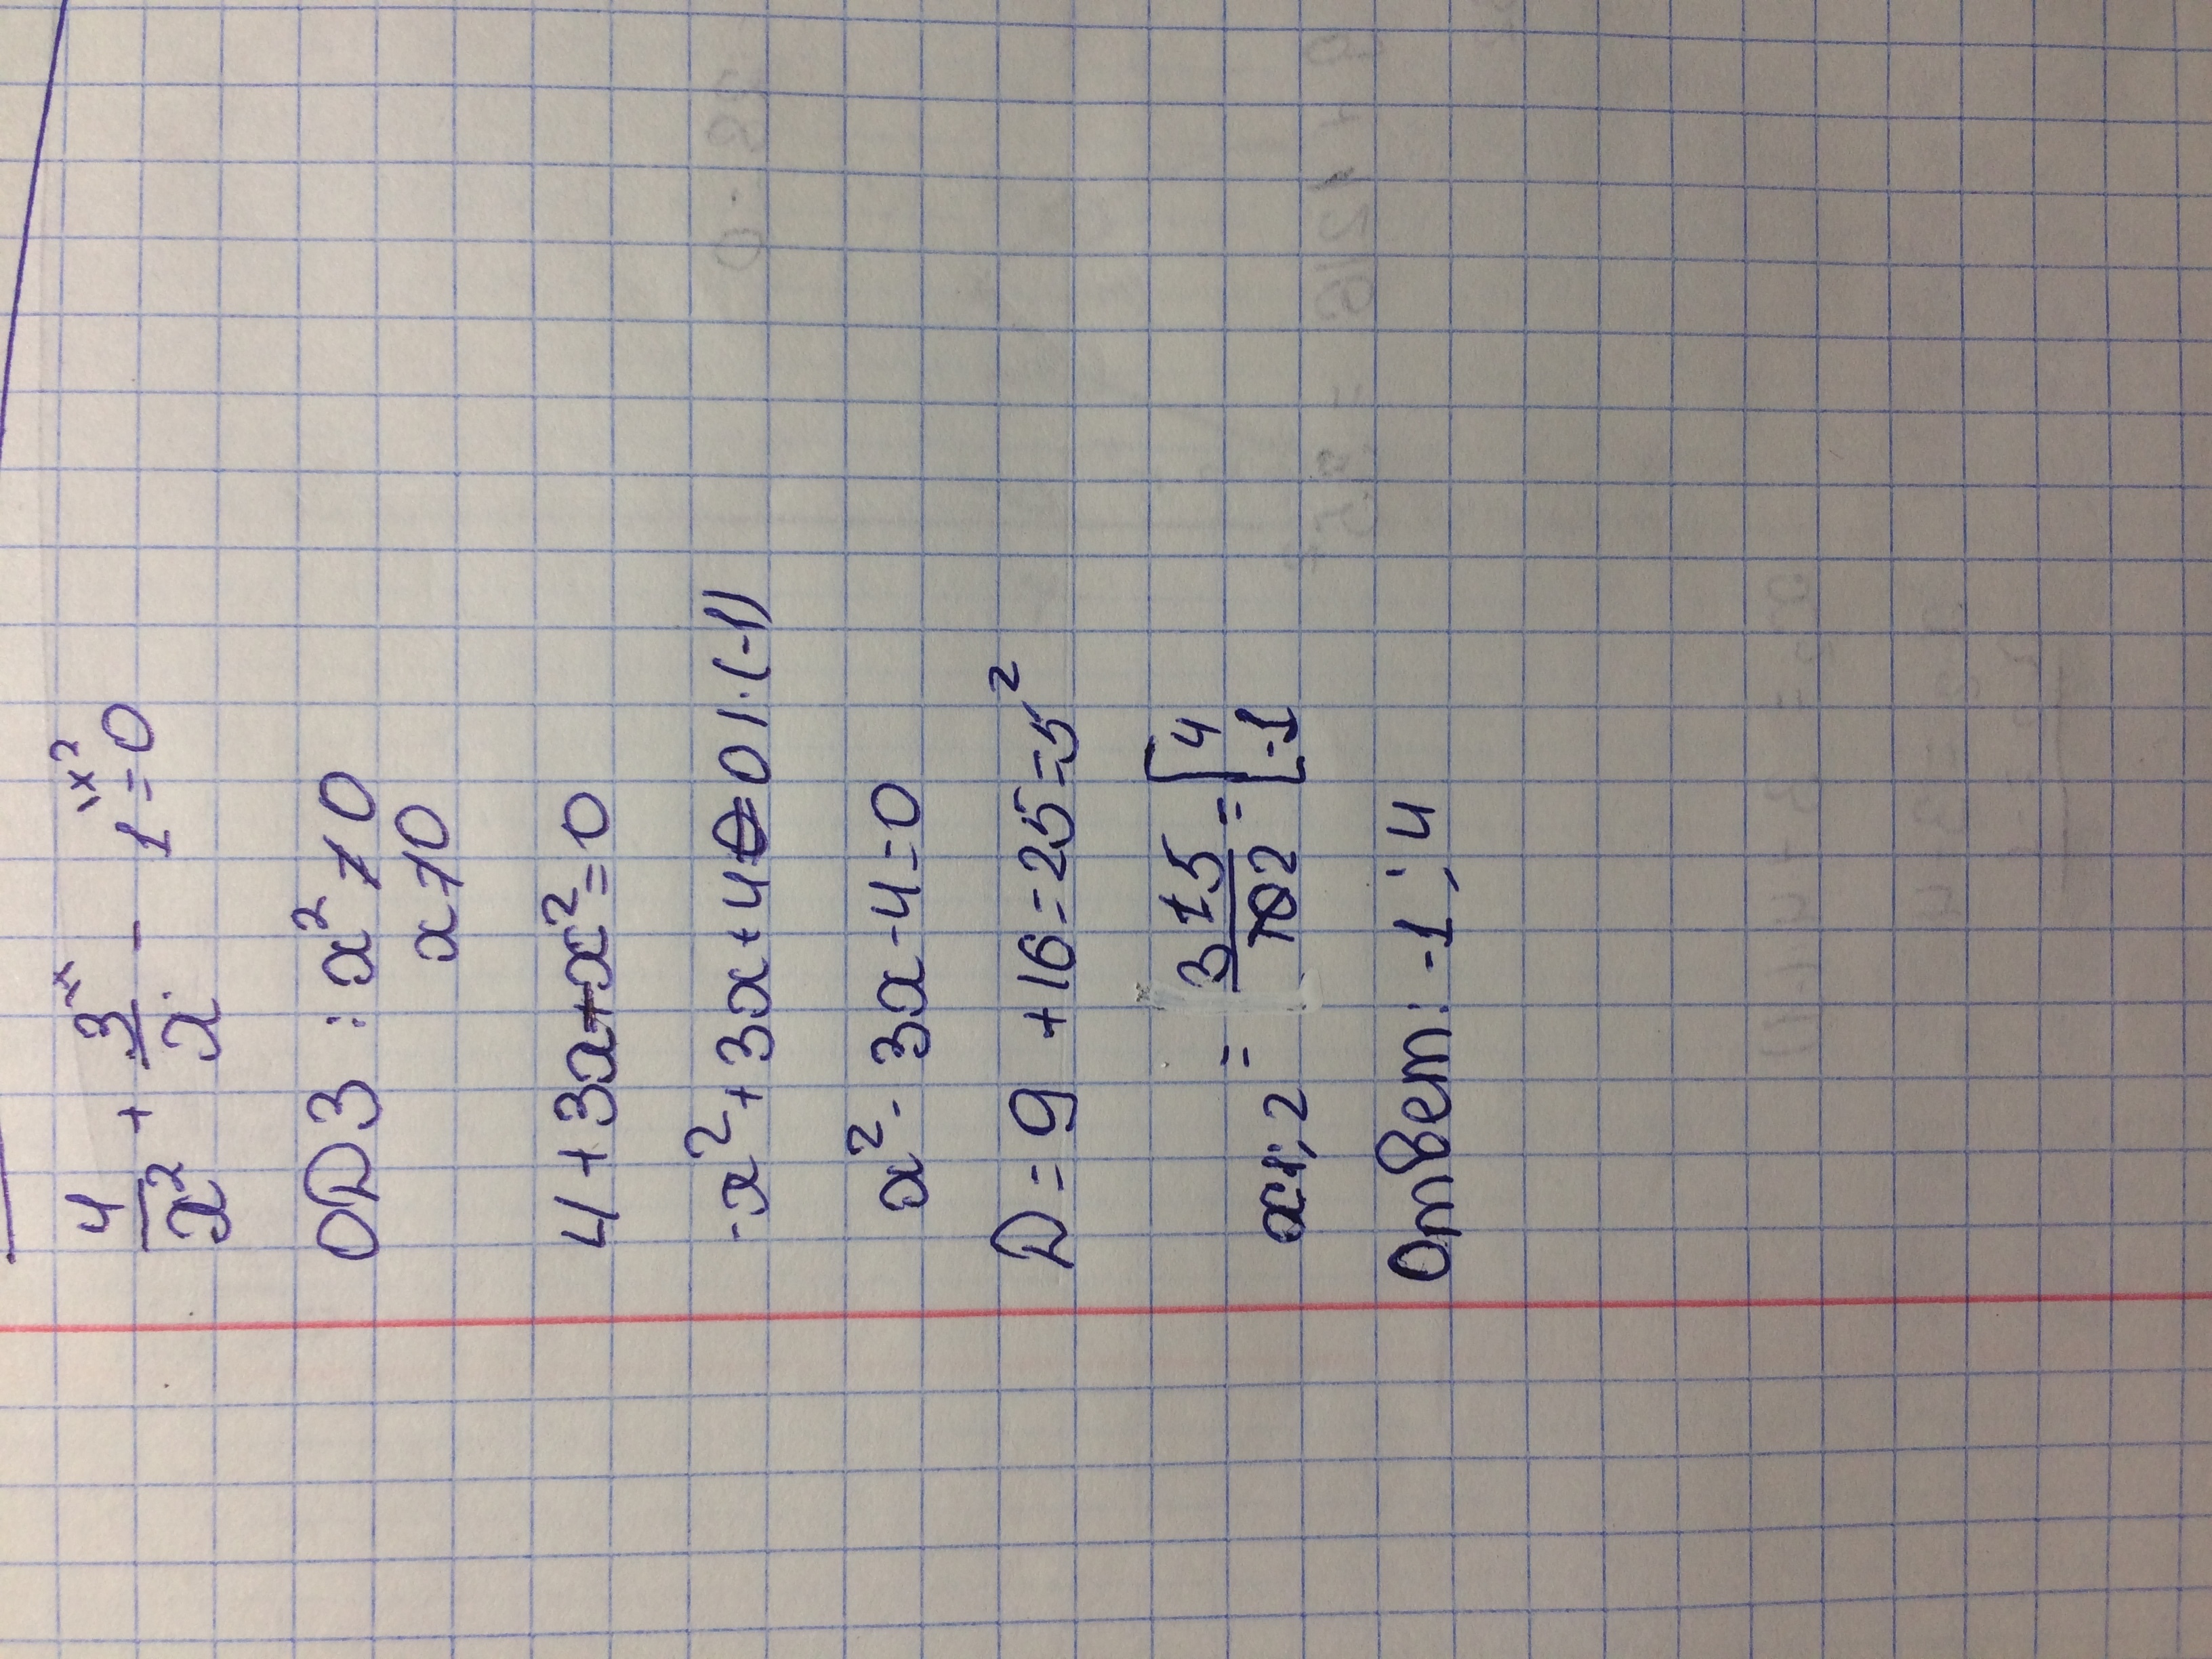 4/x² + 3\x/x - 1\x² = 0
ОДЗ : x² ≠ 0
x ≠ 0
4 + 3x - x² = 0
-x² + 3x + 4 = 0 | · (-1)
x² - 3x - 4 = 0
D = 9 + 16 = 25 = 5²
x1,2 = 3 ± 5 / 2 = [ 4 -1
Ответ: -1; 4